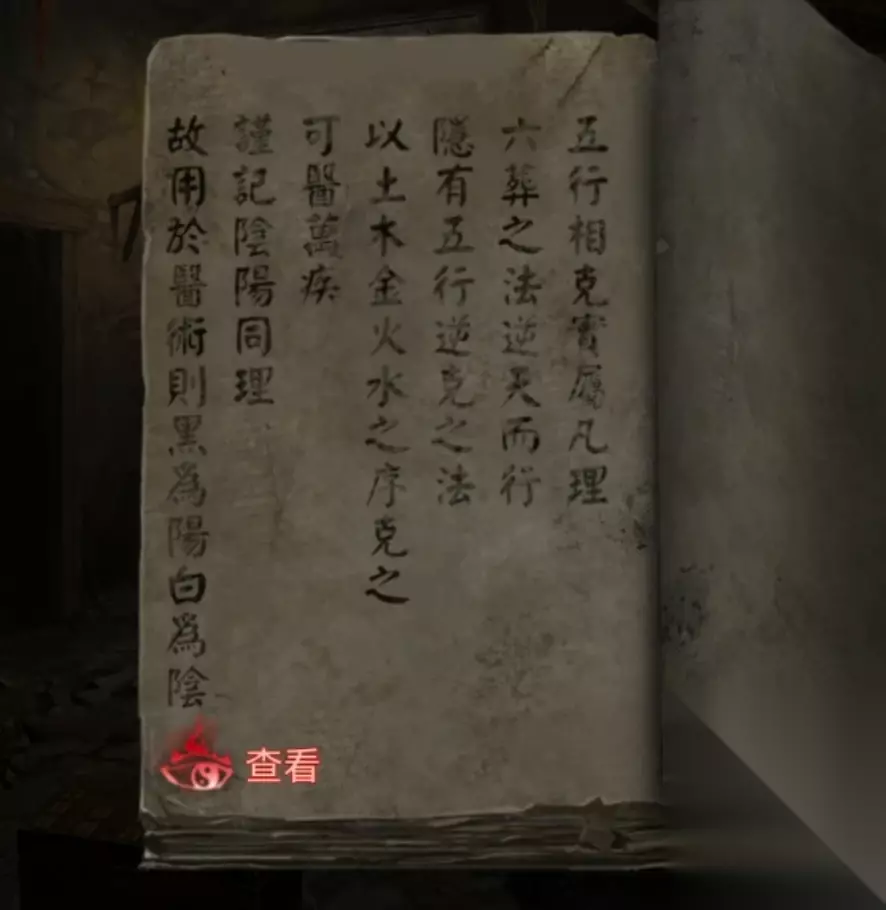 五行相克實屬凡理
六葬之法逆天而行
隱有五行逆克之法
以土木金火水之序克之
可醫萬疾
謹記陰陽同理
故用於醫術則黑為陽白為陰
查看